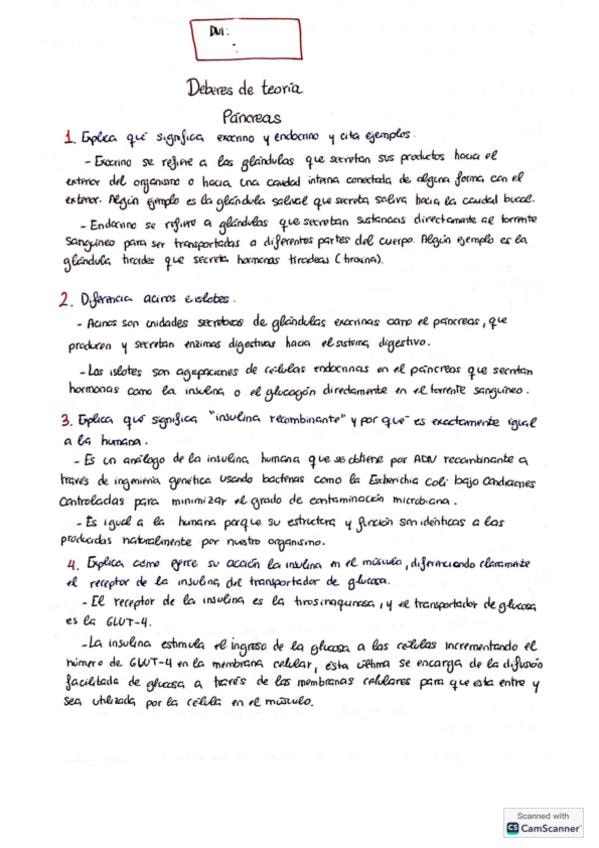 DNI:
Deberes de teoría
Páncreas
1. Explica qué significa exocrino y endocrino y cita ejemplos.
- Exocrino se refiere a las glándulas que secretan sus productos hacia el
exterior del organismo o hacia una caudal interna conectada de alguna forma con el
exterior. Algún ejemplo es la glándula salival que secreta saliva hacia la caudal bucal.
- Endocrino se refiere a glándulas que secretan sustancias directamente al torrente
sanguíneo para ser transportadas a diferentes partes del cuerpo. Algún ejemplo es la
glándula tiroides que secreta hormonas tiroideas (tiroxina).
2. Diferencia acinos e islotes.
- Acinos son unidades secretoras de glándulas exocrinas como el páncreas, que
producen y secretan enzimas digestivas hacia el sistema digestivo.
- Los islotes son agrupaciones de células endocrinas en el páncreas que secretan
hormonas como la insulina o el glucagón directamente en el torrente sanguíneo.
3. Explica qué significa "insulina recombinante" y por qué es exactamente igual
a la humana.
- Es un análogo de la insulina humana que se obtiene por ADN recombinante a
través de ingeniería genética usando bacterias como la Escherichia Coli bajo condiciones
controladas para minimizar el grado de contaminación microbiana.
- Es igual a la humana porque su estructura y función son idénticas a las
producidas naturalmente por nuestro organismo.
4. Explica cómo ejerce su acción la insulina en el músculo, diferenciando claramente
el receptor de la insulina del transportador de glucosa.
- El receptor de la insulina es la tirosinaquinasa, y el transportador de glucosa
es la GLUT-4.
- La insulina estimula el ingreso de la glucosa a las células incrementando el
número de GLUT-4 en la membrana celular, ésta última se encarga de la difusión
facilitada de glucosa a través de las membranas celulares para que esta entre y
sea utilizada por la célula en el músculo.
Scanned with
CS CamScanner